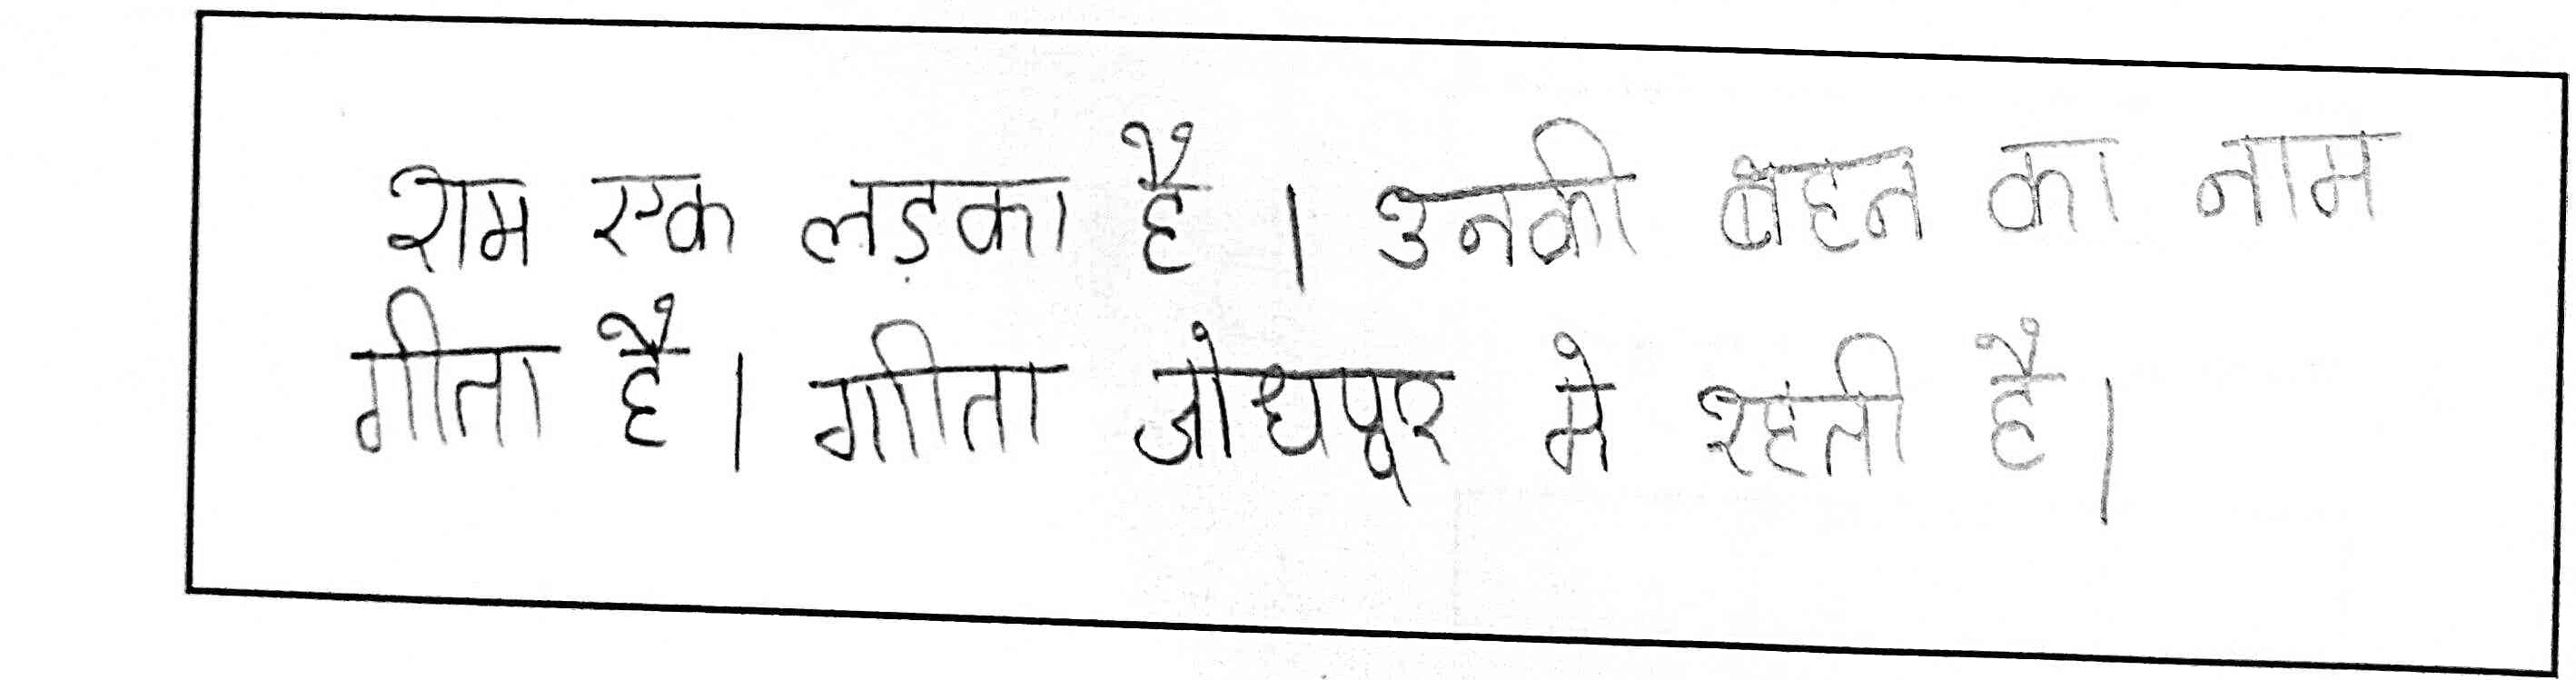 राम एक लड़का है। उनकी बहन का नाम
गीता है। गीता जोधपूर मे रहती है।